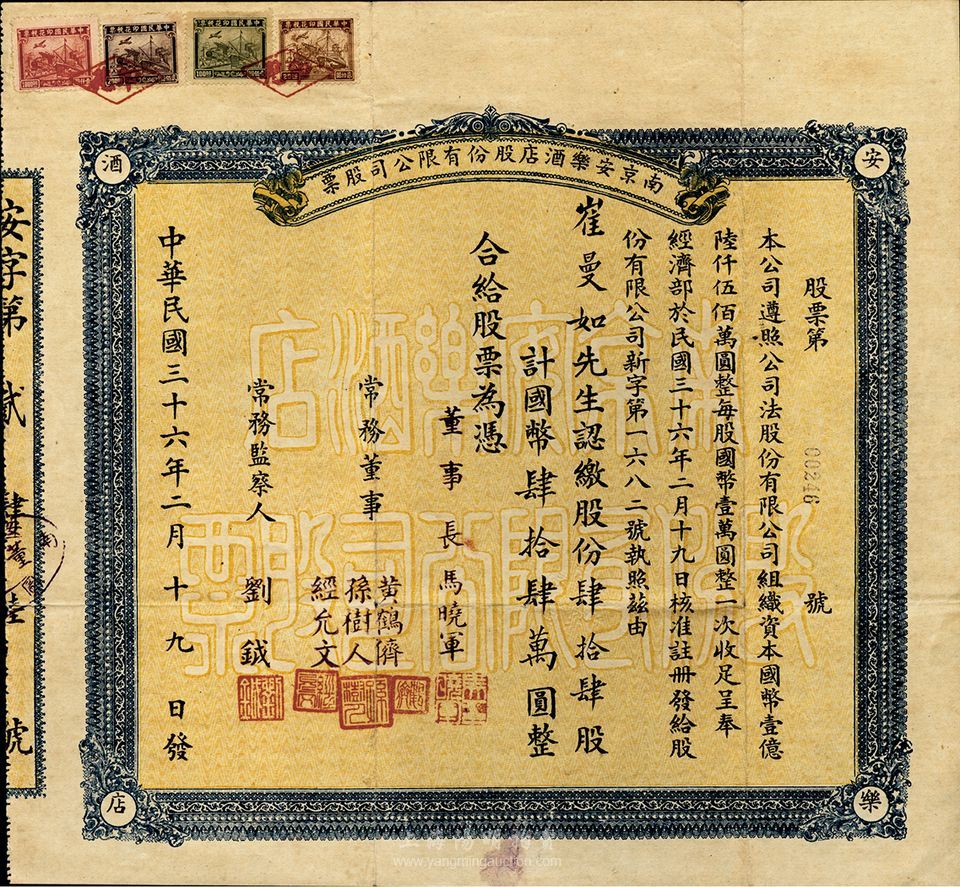 中華民國印花稅票
中華民國印花稅票
中華民國印花稅票
中華民國印花稅票
南京安樂酒店股份有限公司股票
安
樂
酒
店
股票第 00246 號
本公司遵照公司法股份有限公司組織資本國幣壹億
陸仟伍佰萬圓整每股國幣壹萬圓整一次收足呈奉
經濟部於民國三十六年二月十九日核准註冊發給股
份有限公司新字第一六八二號執照茲由
崔曼如先生認繳股份肆拾肆股
計國幣肆拾肆萬圓整
合給股票為憑
董事長 馬曉軍
常務董事 黃鶴儕
孫樹人
經允文
常務監察人 劉鉞
中華民國三十六年二月十九日發
安字第貳肆陸號
www.yangmingauction.com